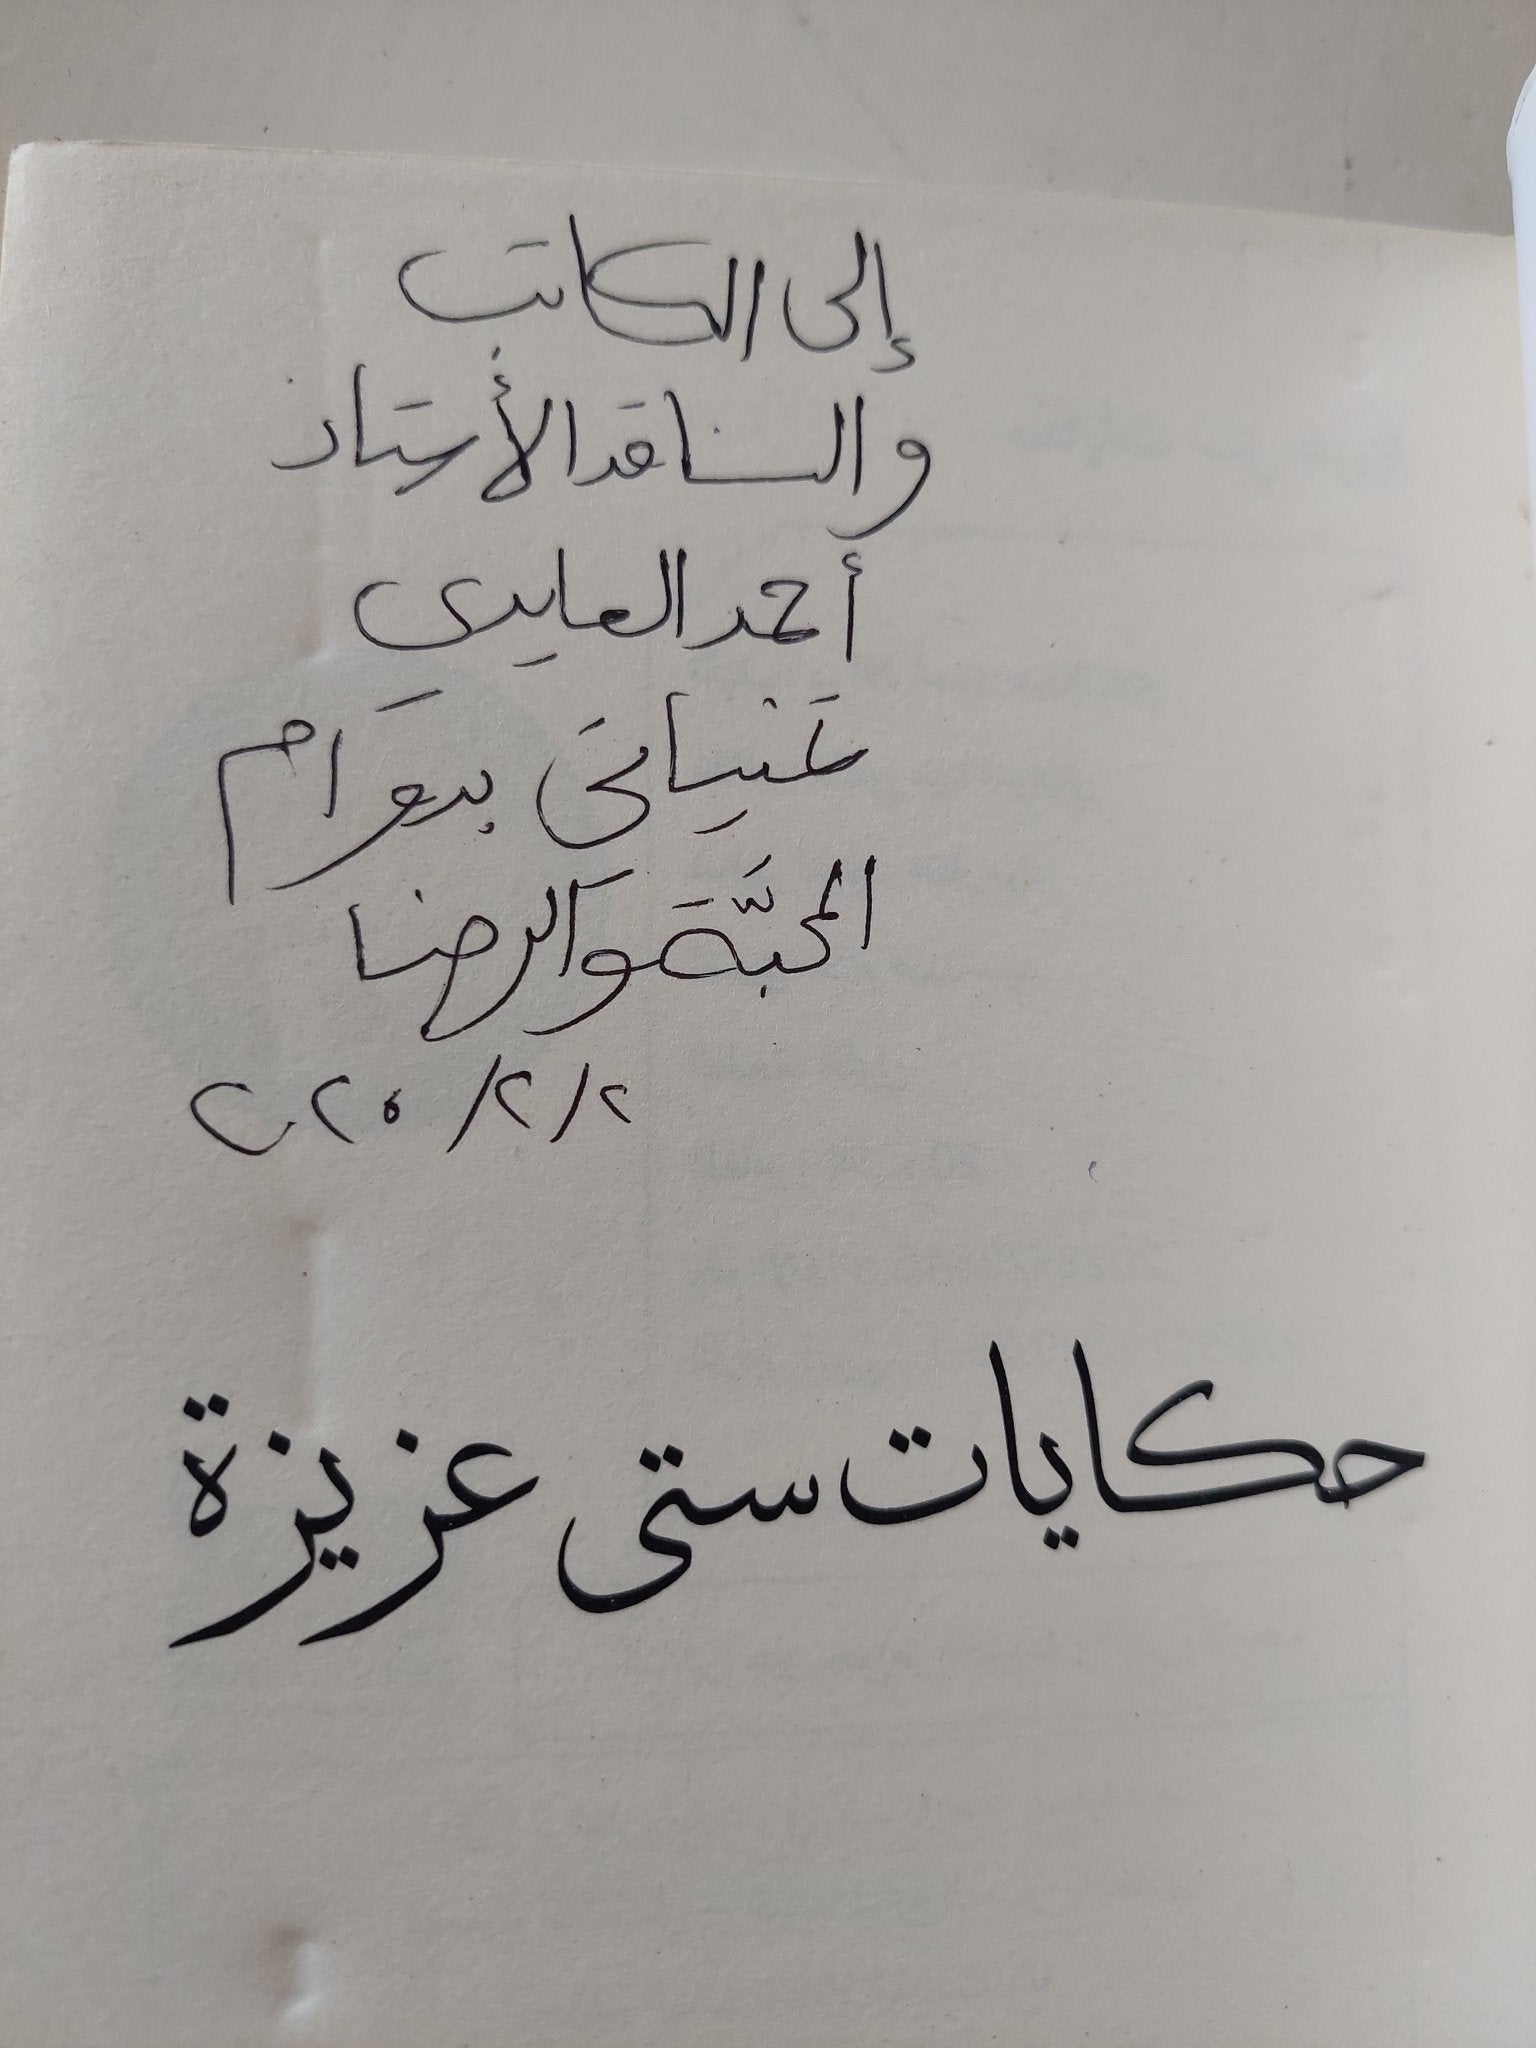 إلى الكاتب
والناقد الأستاذ
أحمد العايدى
تمنياتى بدوام
المحبَّة والرضا
٢/٢/٢٠٢٠
حكايات ستى عزيزة